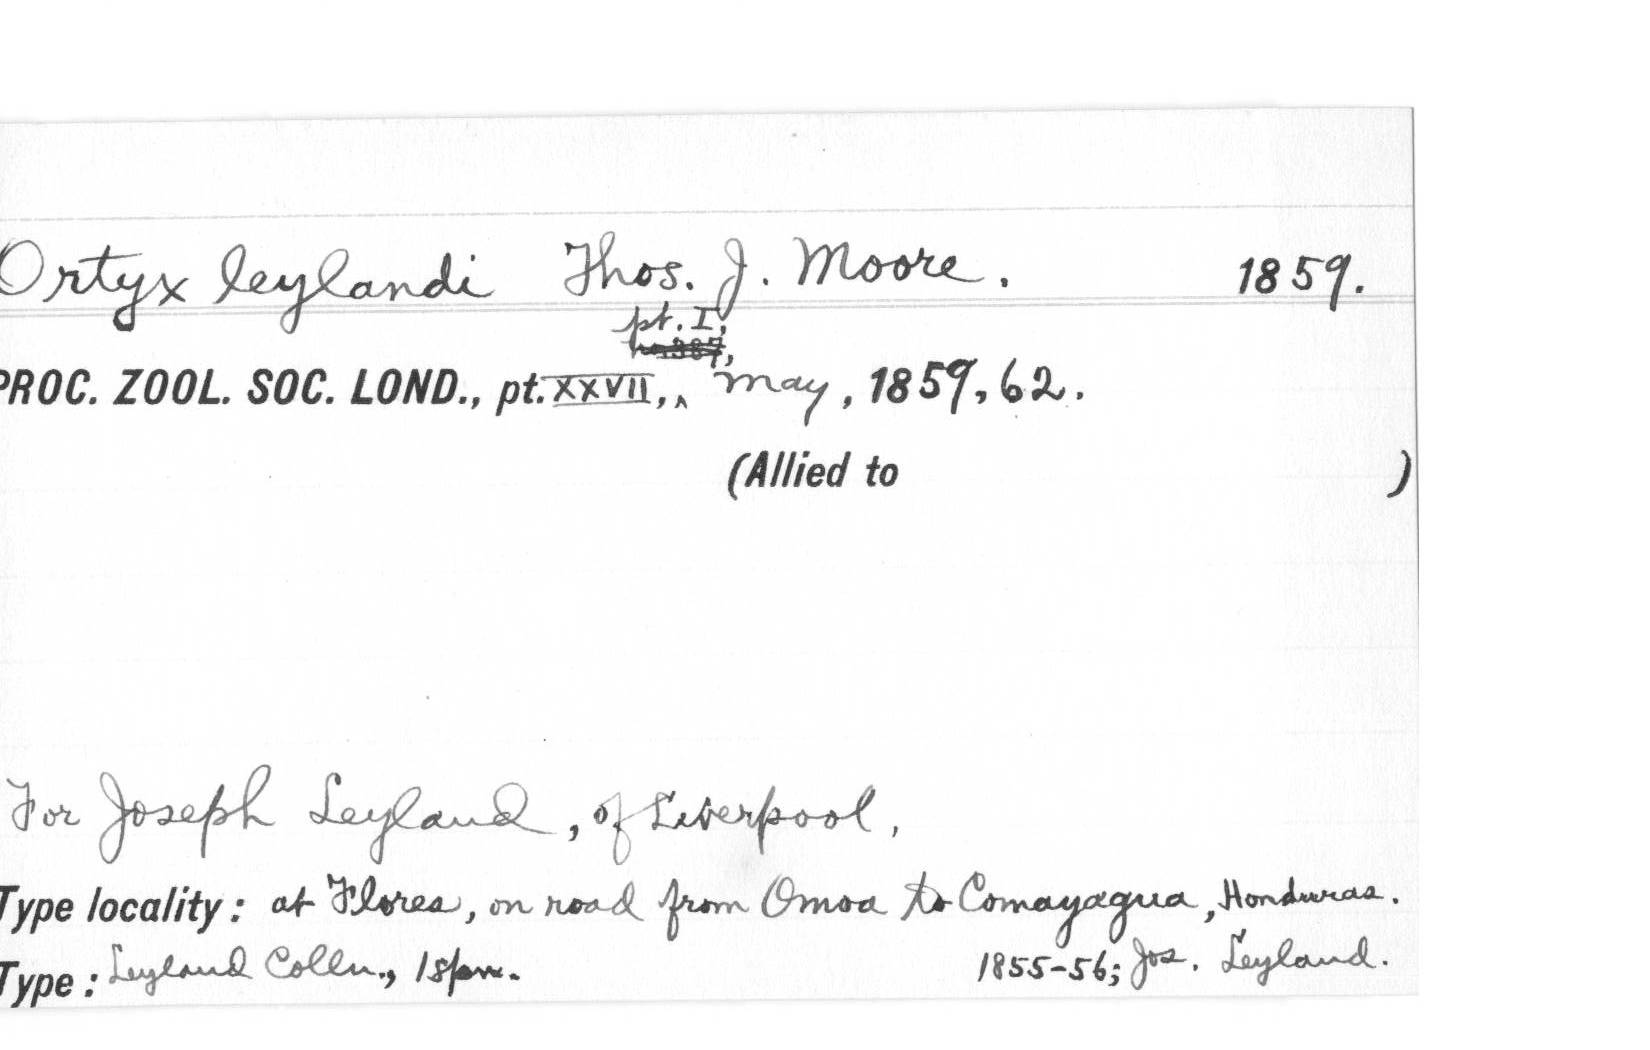 Ortyx leylandi Thos. J. Moore. 1859.
pt. I,
no. 387,
PROC. ZOOL. SOC. LOND., pt. XXVII,‸ May, 1859, 62.
(Allied to )
For Joseph Leyland, of Liverpool.
Type locality: at Flores, on road from Omoa to Comayagua, Honduras.
Type: Leyland Colln., 1 spm. 1855-56; Jos. Leyland.